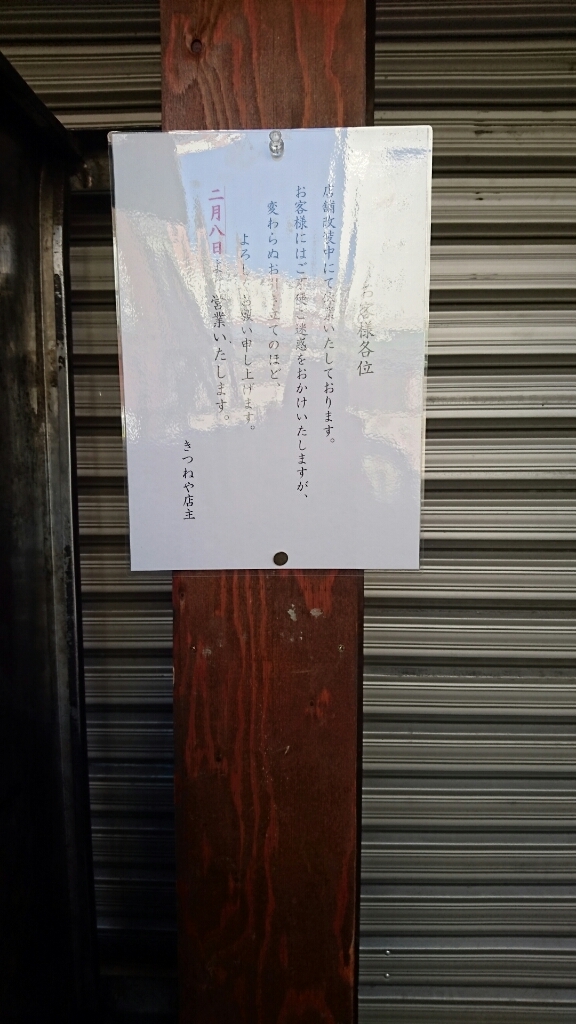 お客様各位
店舗改装中にて業いたしております。
お客様にはご不便ご迷惑をおかけいたしますが、
変わらぬお引き立てのほど、
よろしくお願い申し上げます。
二月八日営業いたします。
きつねや店主